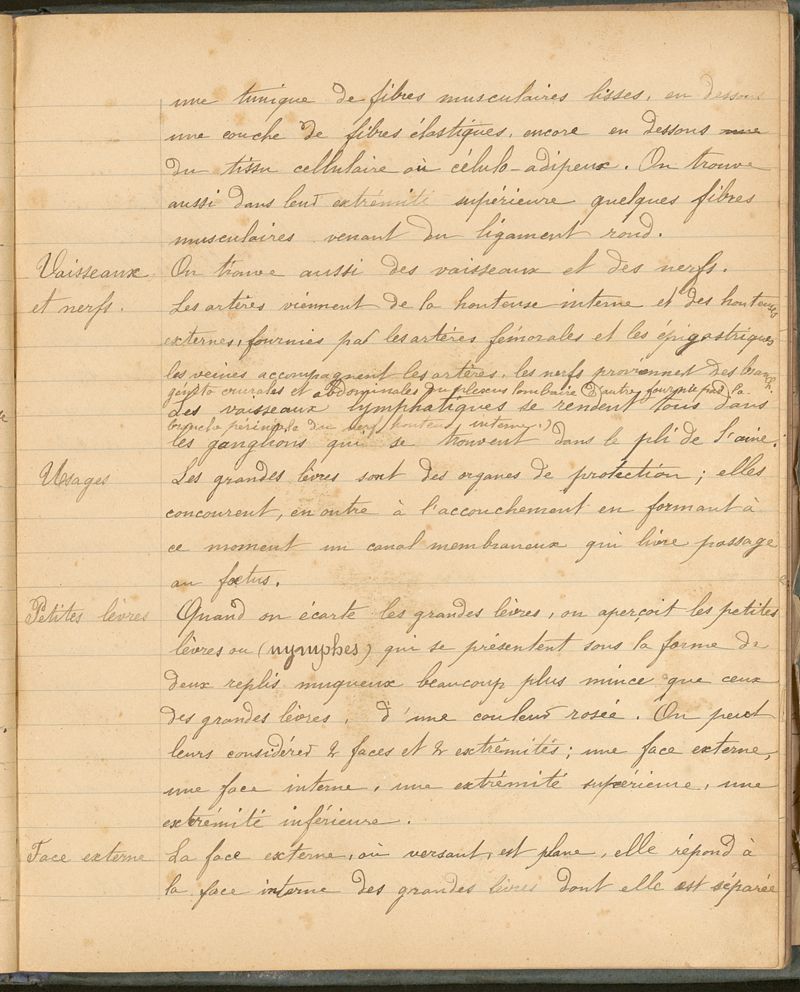 une tunique de fibres musculaires lisses, en dessous
une couche de fibres élastiques, encore en dessous une
du tissu cellulaire où célulo-adipeux. On trouve
aussi dans leur extrémité supérieure quelques fibres
musculaires venant du ligament rond.
Vaisseaux et nerfs.
On trouve aussi des vaisseaux et des nerfs.
Les artères viennent de la honteuse interne et des honteuses
externes, fournies par les artères fémorales et les épigastriques
les veines accompagnent les artères, les nerfs proviennent des branch.
génito crurales et abdominales du plexus lombaire d'autre fournie par la
branche périnéale du nerf honteux interne.)
Les vaisseaux lymphatiques se rendent tous dans
les ganglions qui se trouvent dans le pli de l'aine.
Usages
Les grandes lèvres sont des organes de protection ; elles
concourent, en outre à l'accouchement en formant à
ce moment un canal membraneux qui livre passage
au fœtus.
Petites lèvres
Quand on écarte les grandes lèvres, on aperçoit les petites
lèvres ou (nymphes) qui se présentent sous la forme de
deux replis muqueux beaucoup plus mince que ceux
des grandes lèvres, d'une couleur rosée. On peut
leurs considérer 2 faces et 2 extrémités ; une face externe,
une face interne, une extrémité supérieure, une
extrémité inférieure.
Face externe
La face externe, où versant, est plane, elle répond à
la face interne des grandes lèvres dont elle est séparée